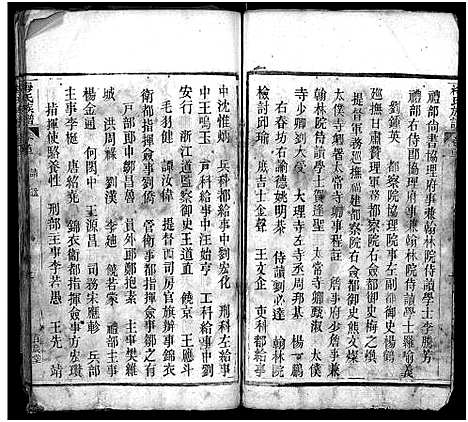 禮部尚書協理府事兼翰林院侍讀學士李騰芳
禮部右侍郎協理府事兼翰林院侍讀學士羅喻義
劉鍾英 都察院協理院事左僉都御史楊鶴
巡撫甘肅等處都察院右僉都御史梅之煥
提督軍務巡撫福建都察院右僉都御史熊文燦
太僕寺 太常寺卿事程註 少詹事兼
翰林院侍讀學士雷逢聖 太常寺卿 太僕
寺少卿劉大受 大理寺左寺丞周邦基 楊一鵬
右春坊右諭德姚明恭 侍讀劉必達 翰林院
檢討邱瑜 庶吉士金聲 王文企 吏科都給事
中沈惟炳 兵科都給事中劉宏化 刑科左給事
中王鳴玉 戶科給事中汪始亨 工科給事中
安行 浙江道監察御史王道直 饒京 王應斗
毛羽健 譚汝偉 提督西司房官旗辦事錦衣
衛都指揮僉事劉僑 管衛事都指揮僉事鄒之有
戶部郎中鄒昌胤 員外郎鄭抱素 主事樊維
城 洪周祿 劉漢 李廸 饒若蒙 禮部主事
楊金通 何閎中 王源昌 司務宋應軫 兵部
主事李梃 唐紹堯 錦衣衛都指揮僉事方宏瓚
指揮使駱養性 刑部主事李若愚 王先 靖
梅氏族譜